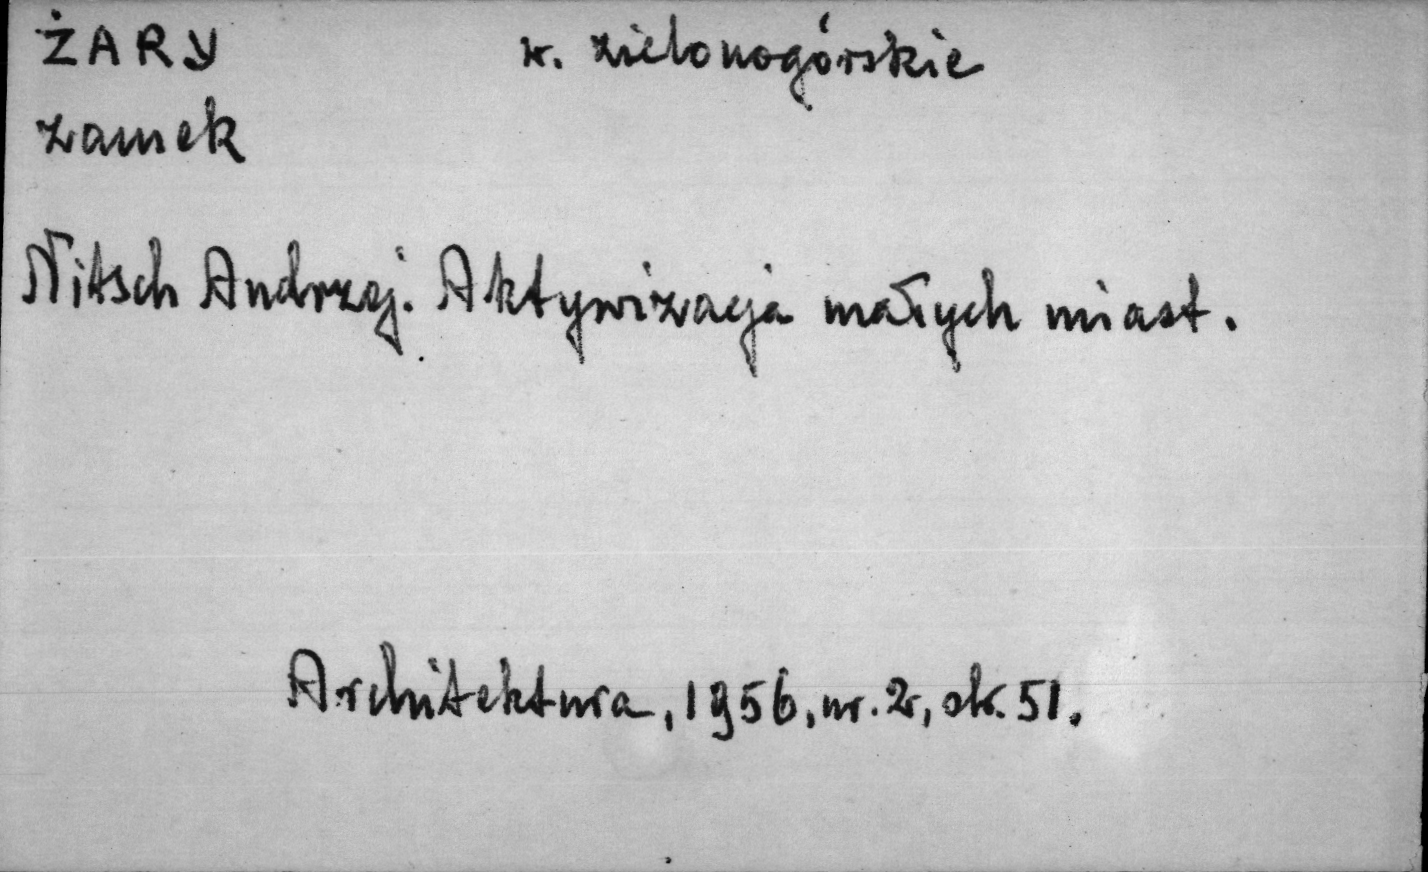 ŻARY w. zielonogórskie
zamek
Nitsch Andrzej. Aktywizacja małych miast.
Architektura, 1956, nr. 2, str. 51.